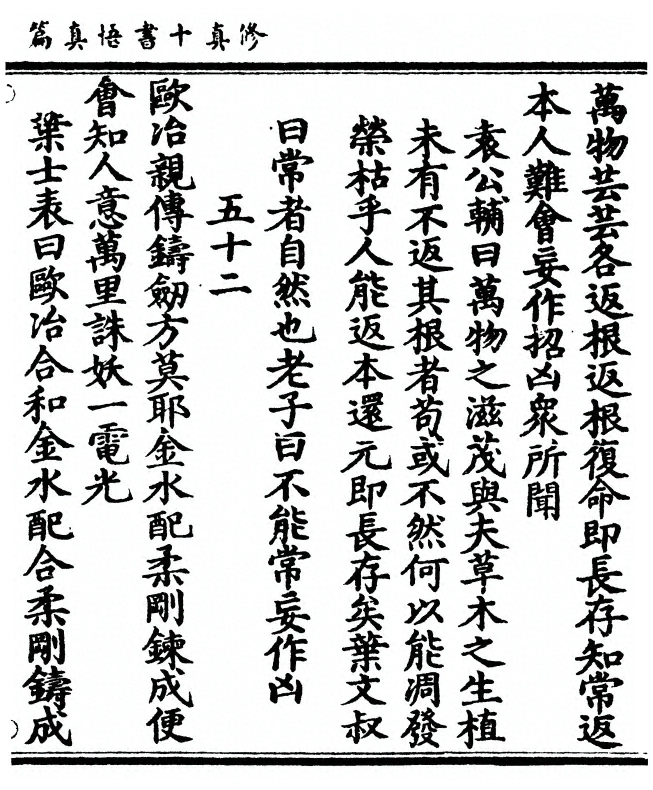 修真十書悟真篇
萬物芸芸各返根返根復命即長存知常返
本人難會妄作招凶衆所聞
袁公輔曰萬物之滋茂與夫草木之生植
未有不返其根者苟或不然何以能凋發
榮枯乎人能返本還元即長存矣葉文叔
曰常者自然也老子曰不能常妄作凶
五十二
歐冶親傳鑄劒方莫耶金水配柔剛鍊成便
會知人意萬里誅妖一電光
梁士表曰歐冶合和金水配合柔剛鑄成